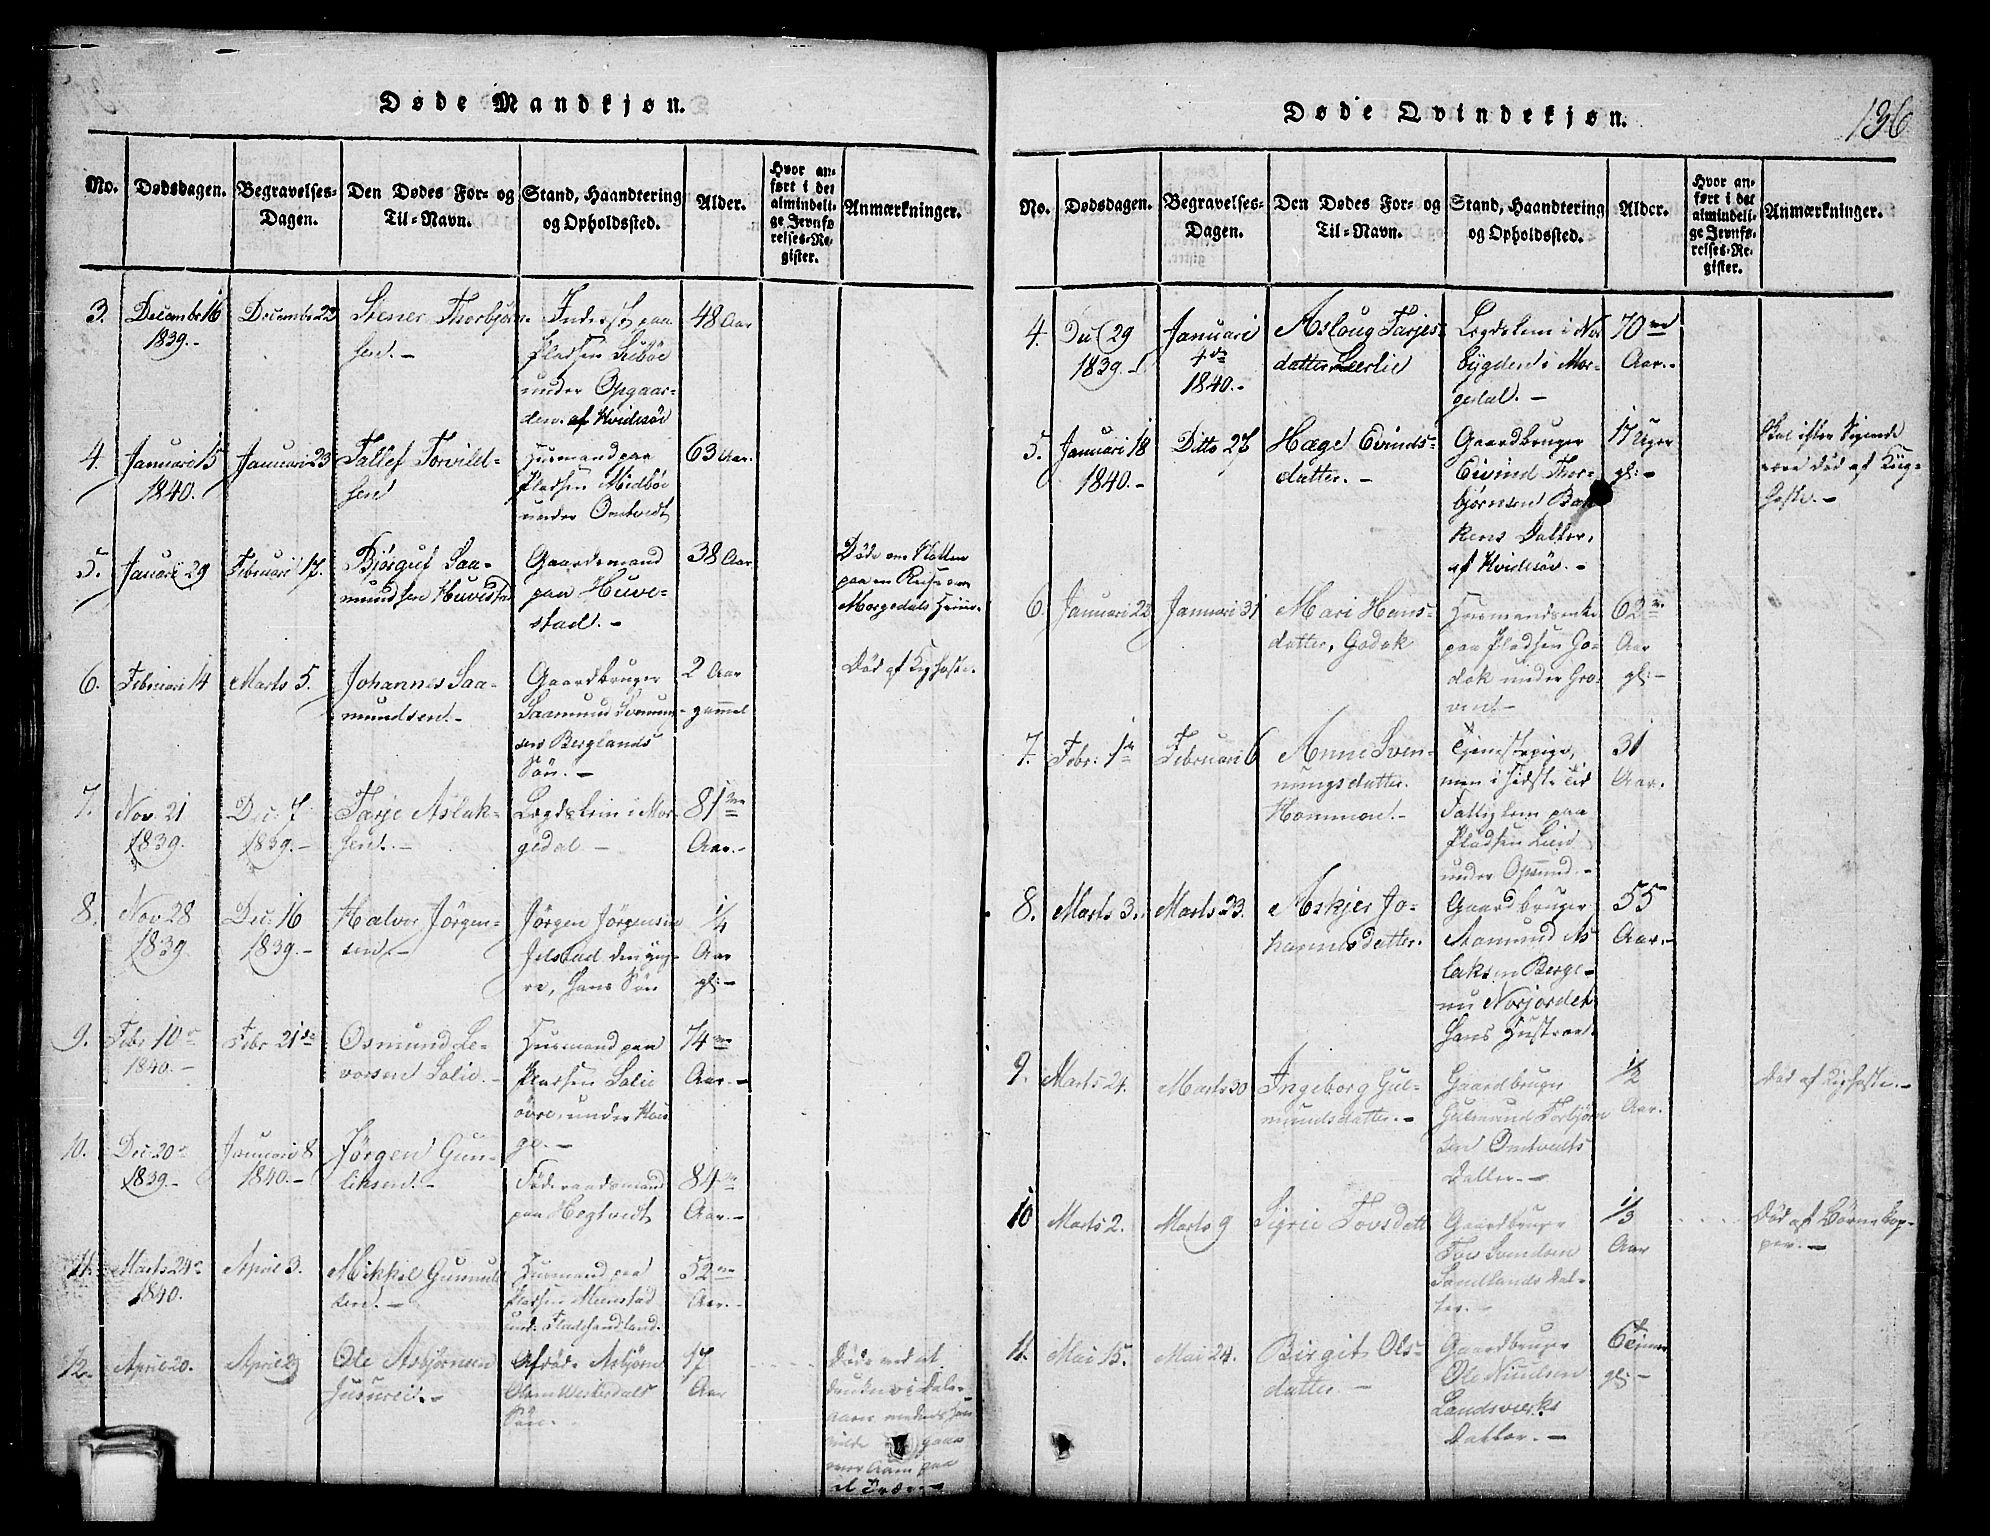 136
Døde Mandkjøn.
No.
Dødsdagen.
Begravelses-
Dagen.
Den Dødes For- og
Til-Navn.
Stand, Haandtering
og Opholdssted.
Alder.
Hvor an-
ført i det
almindeli-
ge Jevnfø-
relses-Re-
gister.
Anmærkninger.
3.
Decembr 16
1839.-
December 22
Stener Thorbjørn-
sen.-
Inderst paa
Pladsen
under Opgaar-
den af Hvidesøe
48 Aar
4.
Januari 15
1840.
Januari 23
Tallef Torvild-
sen
Husmand paa
Pladsen Midbøe
under Omtvedt
63 Aar.
5.
Januari 29
Februari 17.
Bjørguf Saa-
mundsen Huvestad
Gaardemand
paa Huve-
stad.-
38 Aar
Døde om Natten
paa en Reise over
Morgedals
6.
Februari 14
Marts 5.
Johannes Saa-
mundsen.-
Gaardbruger
Saamund
sen Berglands
Søn.-
2 Aar
gammel
Død af Kighoste.
7.
Nov. 21
1839.
Dec. 7
1839.-
Tarje Aslak-
sen.-
Lægdslem i Mor-
gedal -
81
Aar.-
8.
Nov 28
1839.
Dec. 16
1839.-
Halvor Jörgen-
sen.-
Jørgen Jørgensen
den yng-
re, hans Søn
1/4
Aar
gl:-
9.
Febr 10
1840.-
Febr 21de
Osmund Le-
vorsen Lalie.-
Husmand paa
Pladsen Lalie
øvre, under Hau-
ge.-
74
Aar.-
10.
Dec. 20
1839.-
Januari 8
1840.-
Jørgen Gun-
leksen.-
Föderaadsmand
paa Hegtvedt
84
Aar.-
11.
Marts 24
1840.
April 3.
Mikkel Gunnuls-
sen.-
Husmand paa
Pladsen
und. Fladehandland.
52
Aar.-
12.
April 20.
April 29
Ole Asbjørnsen
Afdøde Asbjørn
Olsen Westerdals
Søn.-
17
Aar
Døde ved at
drukne i Dale-
Aaen medens han
vilde gaae
over Aaen paa
et Træ.-
Døde Qvindekjøn.
No.
Dødsdagen.
Begravelses-
Dagen.
Den Dødes For- og
Til-Navn.
Stand, Haandtering
og Opholdssted.
Alder.
Hvor an-
ført i det
almindeli-
ge Jevnfø-
relses-Re-
gister.
Anmærkninger.
4.
Dec 29
1839.-
Januari
4de
1840.-
Asloug Tarjes-
datter
Lægdslem i Nor-
bygden i Mor-
gedal.-
70
Aar.-
5.
Januari 18
1840.-
Ditto 27
Hæge Eivinds-
datter.-
Gaardbruger
Eivind Thor-
bjørnsen Bak-
kens Datter,
af Hvidesøe.-
17 Uger
gl:-
Skal efter Sigende
være død af Kig-
hoste.-
6.
Januari 22
Januari 31
Mari Hans-
datter, Godok
Husmandsenke
paa Pladsen Go-
dok under Gro-
ven.-
62
Aar
gl:-
7.
Febr. 1
Februari 6
Anne Sven-
nungsdatter.
Hommen.-
Tjenestepige,
men i sidste Tid
Fattiglem paa
Pladsen Lien
under Opsund.-
31
Aar.
8.
Marts 3.
Marts 23.
Askjer Jo-
hannesdatter.
Gaardbruger
Aamund As-
laksen Berge-
nu Norjordet
hans Hustrue.
55
Aar.-
9.
Marts 24.
Marts 30
Ingeborg Gul-
mundsdatter.-
Gaardbruger
Gulmund Torbjørn-
sen Omtvedts
Datter.-
1/2
Aar.
Død af Kighoste.-
10
Marts 2.
Marts 9
Sigrie Tovsdatt
Gaardbruger
Tov
Sandlands Dat-
ter.-
1/3
Aar
Død af Børnekop-
per.-
11.
Mai 15.
Mai 24.
Birgit Ols-
datter.-
Gaardbruger
Ole Nirilsen
Landsværks
Datter.-
6 Timer
gl:-